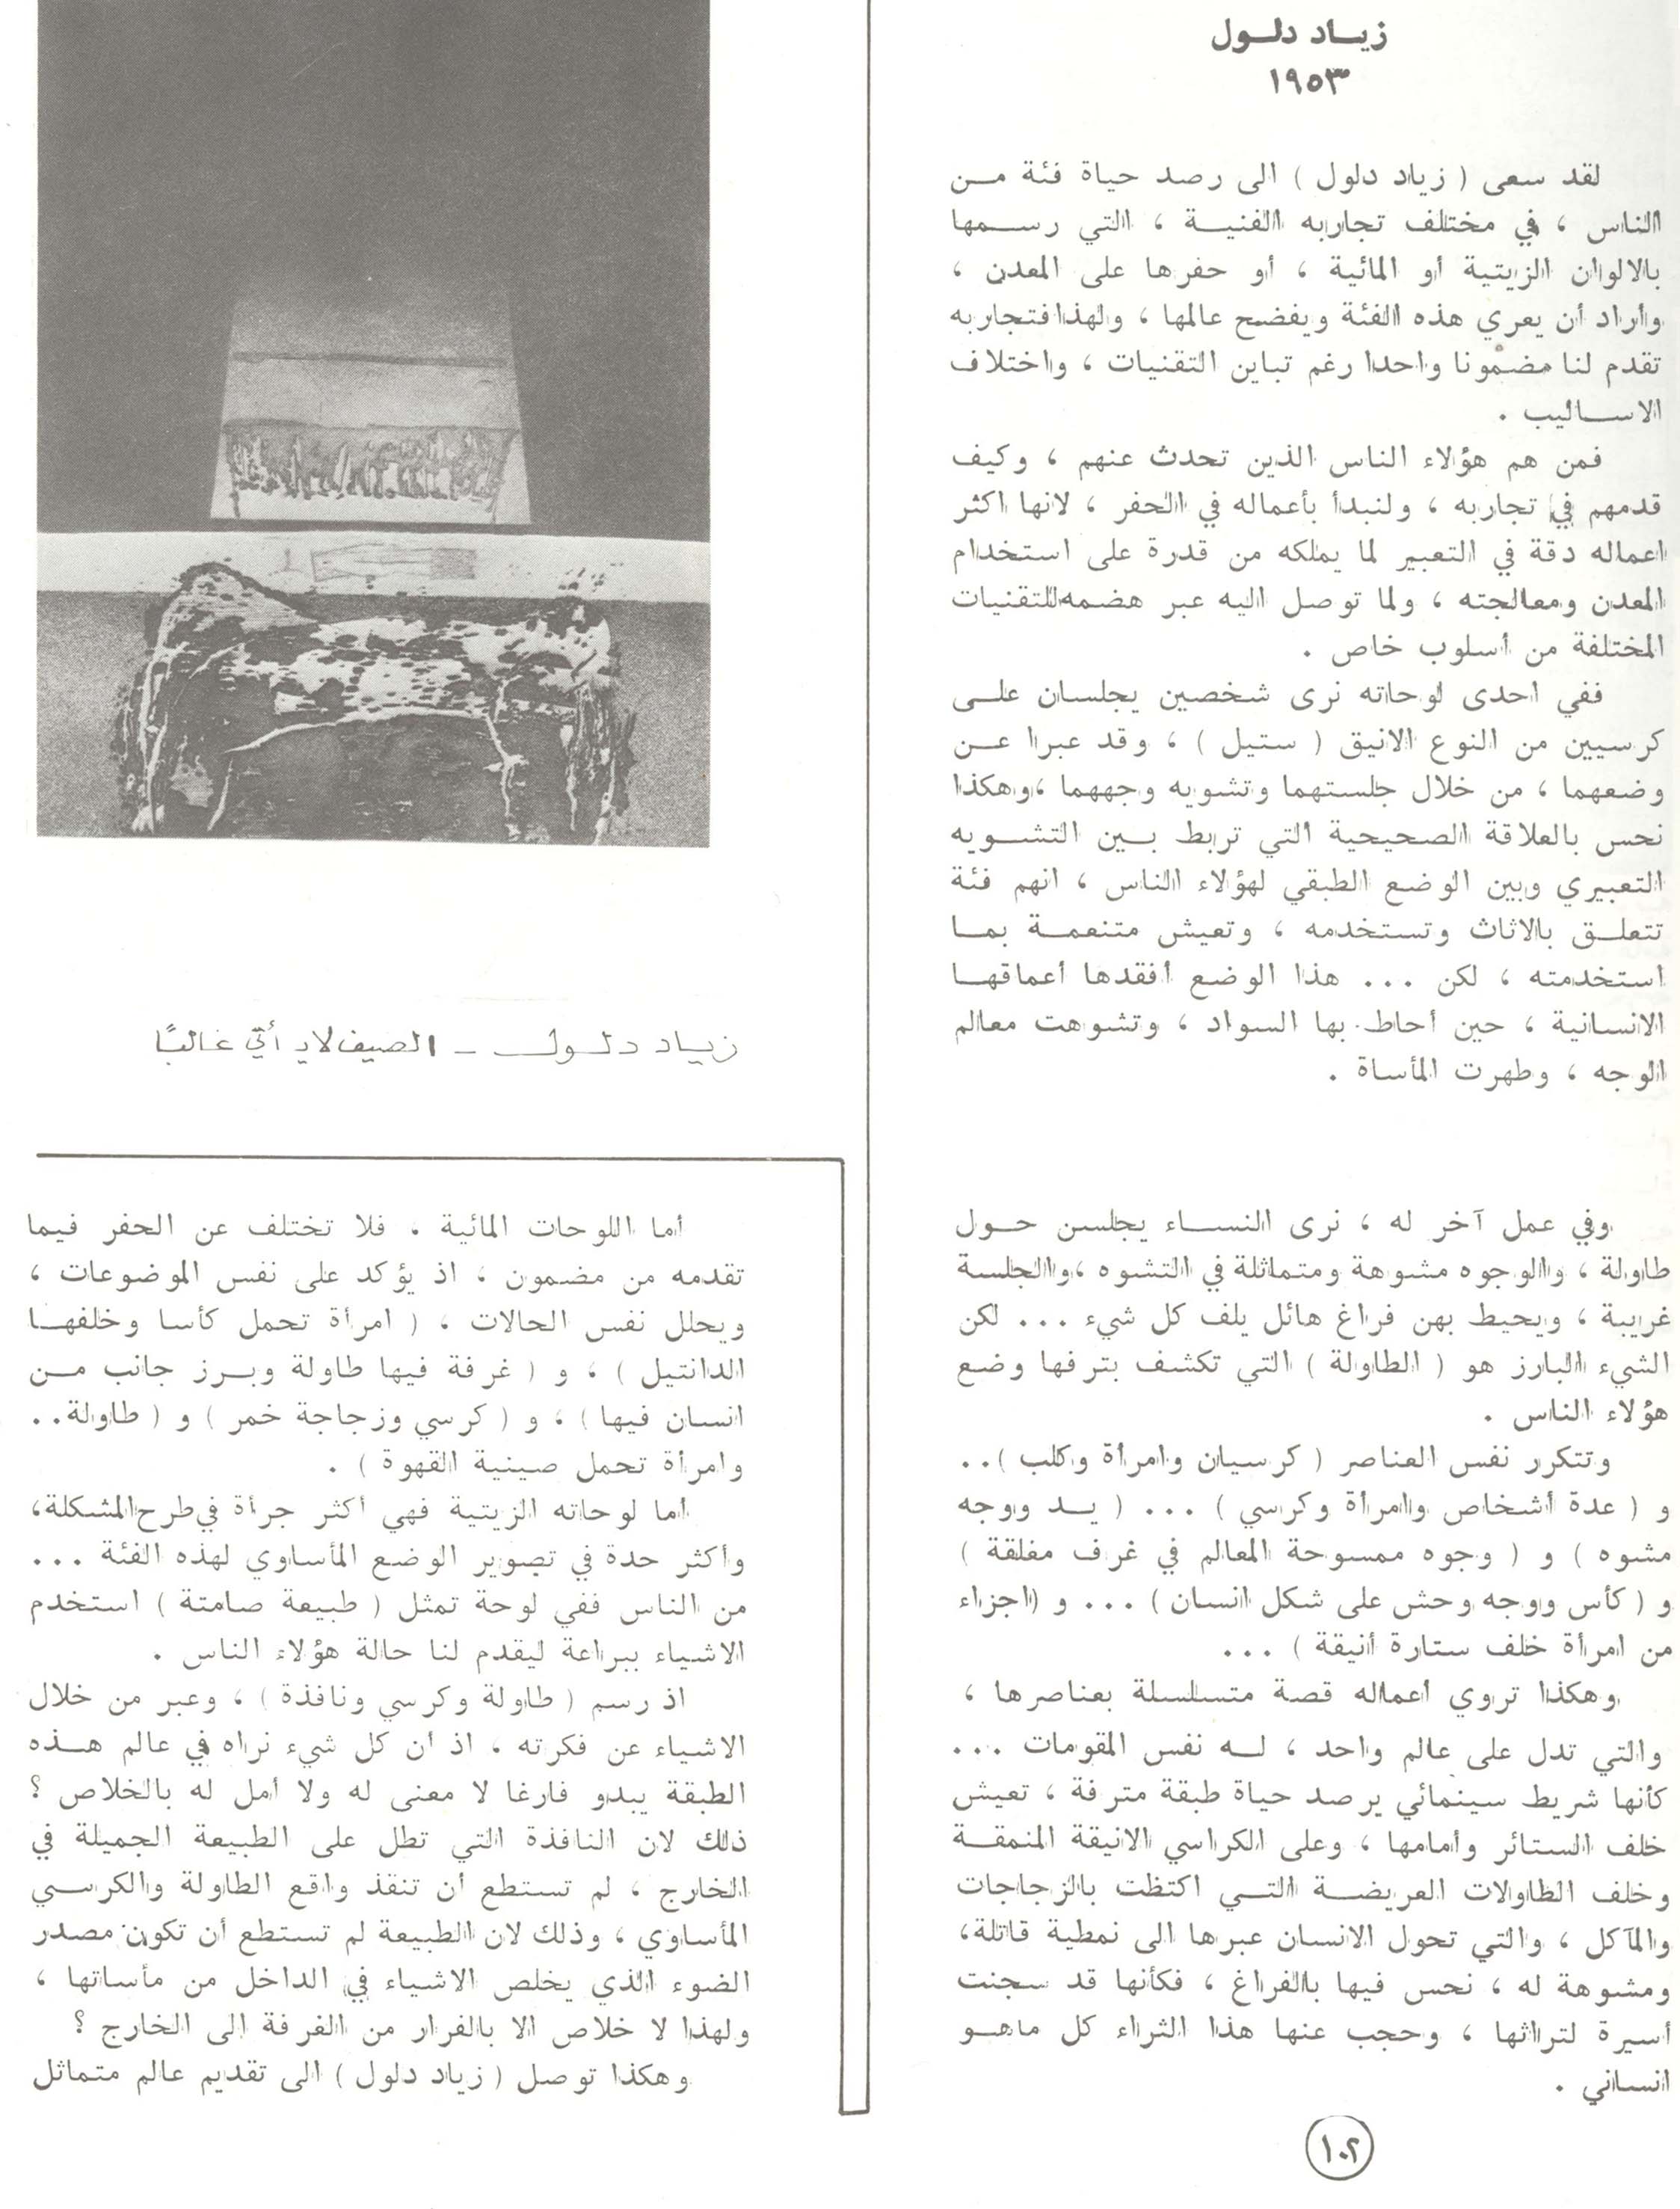 زيــاد دلــول
١٩٥٣
لقد سعى ( زياد دلول ) الى رصد حياة فئة مــن
الناس ، في مختلف تجاربه الفنيــة ، التي رســمها
بالالوان الزيتية أو المائية ، أو حفرها على المعدن ،
وأراد أن يعري هذه الفئة ويفضح عالمها ، ولهذا فتجاربه
تقدم لنا مضمونا واحدا رغم تباين التقنيات ، واختلاف
الاســاليب .
فمن هم هؤلاء الناس الذين تحدث عنهم ، وكيف
قدمهم في تجاربه ، ولنبدأ بأعماله في الحفر ، لانها اكثر
اعماله دقة في التعبير لما يملكه من قدرة على استخدام
المعدن ومعالجته ، ولما توصل اليه عبر هضمه للتقنيات
المختلفة من أسلوب خاص .
ففي احدى لوحاته نرى شخصين يجلسان علــى
كرسيين من النوع الانيق ( ستيل ) ، وقد عبرا عــن
وضعهما ، من خلال جلستهما وتشويه وجههما ، وهكذا
نحس بالعلاقة الصحيحية التي تربط بــين التشــويه
التعبيري وبين الوضع الطبقي لهؤلاء الناس ، انهم فئة
تتعلــق بالاثاث وتستخدمه ، وتعيش متنعمــة بمــا
استخدمته ، لكن ... هذا الوضع أفقدها أعماقهــا
الانسانية ، حين أحاط بها السواد ، وتشوهت معالم
الوجه ، وطهرت المأساة .
وفي عمل آخر له ، نرى النســاء يجلسن حــول
طاولة ، والوجوه مشوهة ومتماثلة في التشوه ، والجلسة
غريبة ، ويحيط بهن فراغ هائل يلف كل شيء ... لكن
الشيء البارز هو ( الطاولة ) التي تكشف بترفها وضع
هؤلاء الناس .
وتتكرر نفس العناصر ( كرسيان وامرأة وكلب ) ..
و ( عدة أشخاص وامرأة وكرسي ) ... ( يــد ووجه
مشوه ) و ( وجوه ممسوحة المعالم في غرف مغلقة )
و ( كأس ووجه وحش على شكل انسان ) ... و (اجزاء
من امرأة خلف ستارة أنيقة ) ...
وهكذا تروي اعماله قصة متسلسلة بعناصرها ،
والتي تدل على عالم واحد ، لــه نفس المقومات ...
كأنها شريط سينمائي يرصد حياة طبقة مترفة ، تعيش
خلف الستائر وأمامها ، وعلى الكراسي الانيقة المنمقــة
وخلف الطاولات العريضــة التــي اكتظت بالزجاجات
والمآكل ، والتي تحول الانسان عبرها الى نمطية قاتلة ،
ومشوهة له ، نحس فيها بالفراغ ، فكأنها قد سجنت
أسيرة لتراثها ، وحجب عنها هذا الثراء كل ماهــو
انساني .
زيــاد دلــول ــ الصيف لا يأتي غالبًا
أما اللوحات المائية ، فلا تختلف عن الحفر فيما
تقدمه من مضمون ، اذ يؤكد على نفس الموضوعات ،
ويحلل نفس الحالات ، ( امرأة تحمل كأسا وخلفهــا
الدانتيل ) ، و ( غرفة فيها طاولة وبــرز جانب مــن
انسان فيها ) ، و ( كرسي وزجاجة خمر ) و ( طاولة..
وامرأة تحمل صينية القهوة ) .
أما لوحاته الزيتية فهي أكثر جرأة في طرح المشكلة ،
وأكثر حدة في تصوير الوضع المأساوي لهذه الفئة ...
من الناس ففي لوحة تمثل ( طبيعة صامتة ) استخدم
الاشياء ببراعة ليقدم لنا حالة هؤلاء الناس .
اذ رسم ( طاولة وكرسي ونافذة ) ، وعبر من خلال
الاشياء عن فكرته ، اذ أن كل شيء نراه في عالم هــذه
الطبقة يبدو فارغا لا معنى له ولا أمل له بالخلاص ؟
ذلك لان النافذة التي تطل على الطبيعة الجميلة في
الخارج ، لم تستطع أن تنقذ واقع الطاولة والكرســي
المأساوي ، وذلك لان الطبيعة لم تستطع أن تكون مصدر
الضوء الذي يخلص الاشياء في الداخل من مأساتها ،
ولهذا لا خلاص الا بالفرار من الغرفة الى الخارج ؟
وهكذا توصل ( زياد دلول ) الى تقديم عالم متماثل
١٠٢